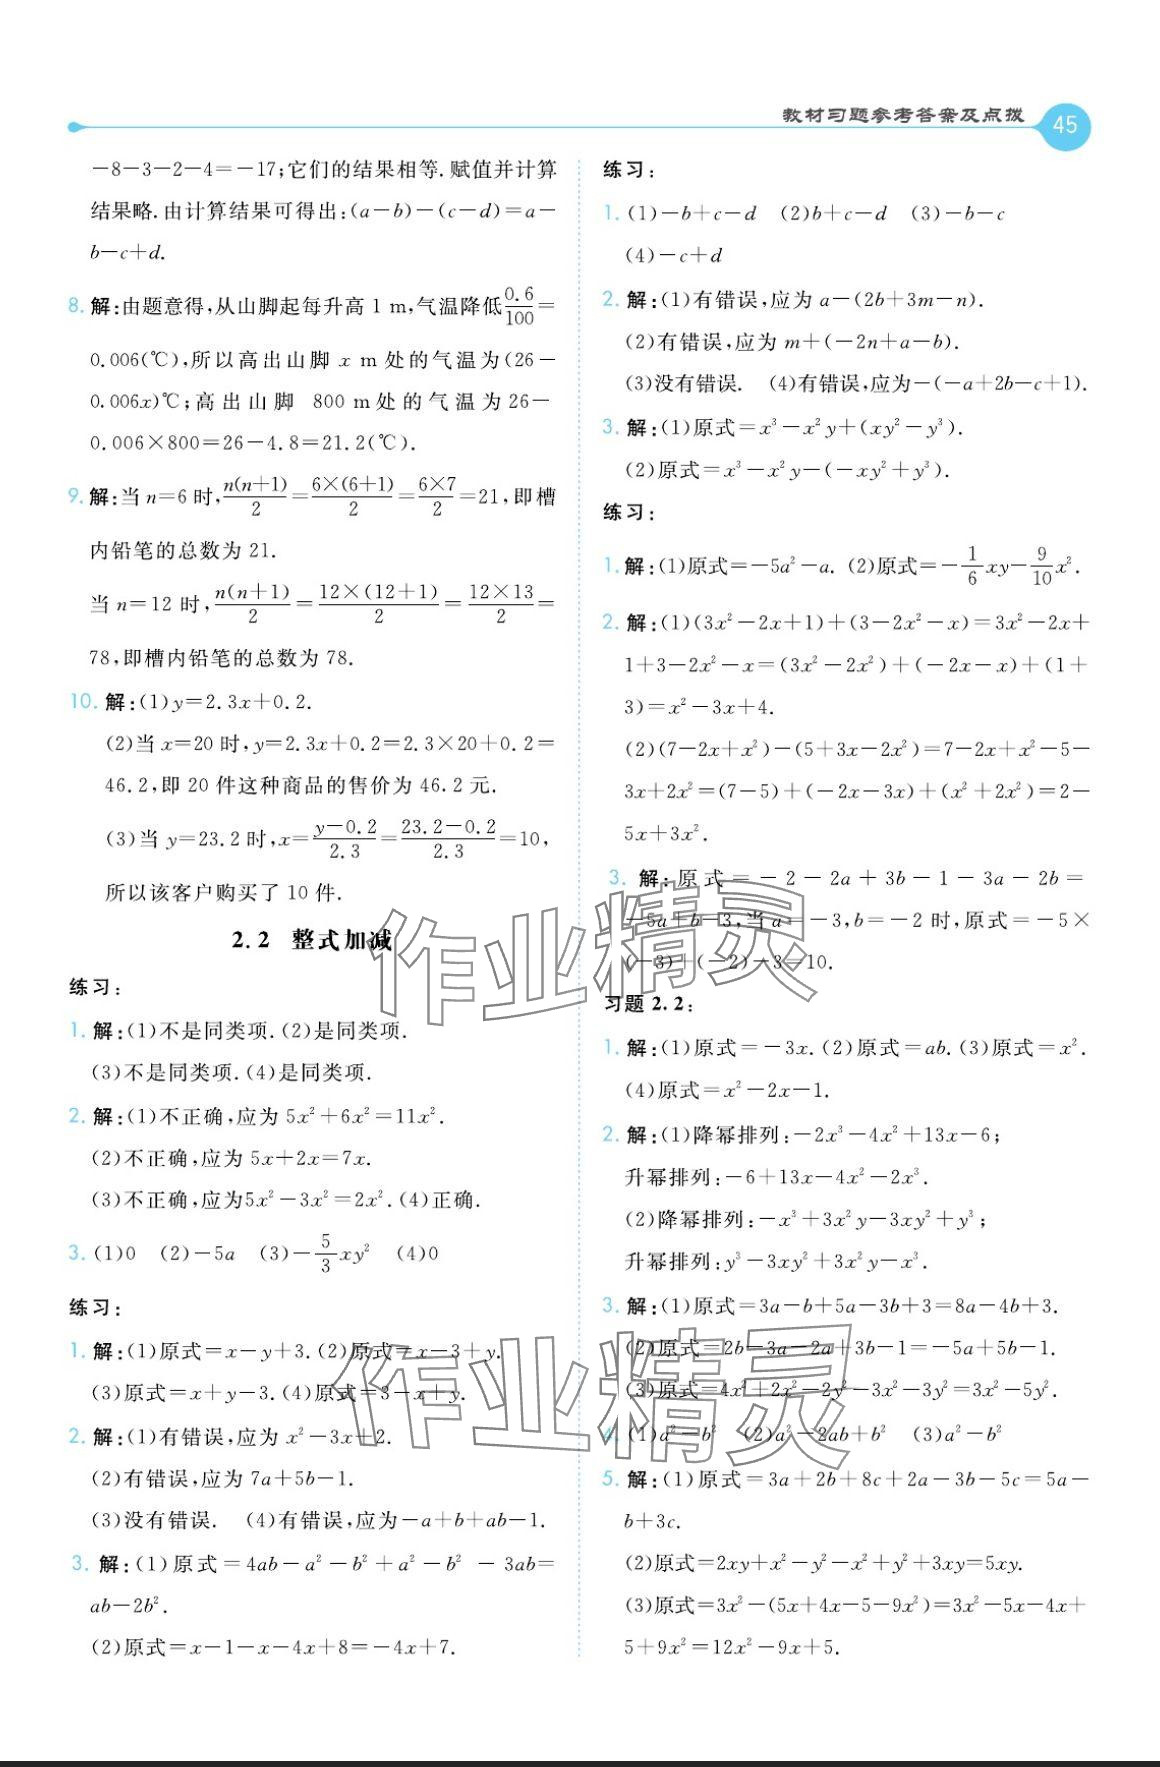 教材习题参考答案及点拨 45
-8-3-2-4=-17;它们的结果相等.赋值并计算
结果略.由计算结果可得出:(a-b)-(c-d)=a-
b-c+d.
8. 解:由题意得,从山脚起每升高 1 m,气温降低0.6/100=
0.006(℃),所以高出山脚 x m 处的气温为(26-
0.006x)℃;高出山脚 800 m 处的气温为 26-
0.006×800=26-4.8=21.2(℃).
9. 解:当 n=6 时,n(n+1)/2=6×(6+1)/2=6×7/2=21,即槽
内铅笔的总数为 21.
当 n=12 时,n(n+1)/2=12×(12+1)/2=12×13/2=
78,即槽内铅笔的总数为 78.
10. 解:(1)y=2.3x+0.2.
(2)当 x=20 时,y=2.3x+0.2=2.3×20+0.2=
46.2,即 20 件这种商品的售价为 46.2 元.
(3)当 y=23.2 时,x=(y-0.2)/2.3=(23.2-0.2)/2.3=10,
所以该客户购买了 10 件.
2.2 整式加减
练习:
1. 解:(1)不是同类项.(2)是同类项.
(3)不是同类项.(4)是同类项.
2. 解:(1)不正确,应为 5x²+6x²=11x².
(2)不正确,应为 5x+2x=7x.
(3)不正确,应为5x²-3x²=2x².(4)正确.
3. (1)0 (2)-5a (3)-5/3xy² (4)0
练习:
1. 解:(1)原式=x-y+3.(2)原式=x-3+y.
(3)原式=x+y-3.(4)原式=3-x+y.
2. 解:(1)有错误,应为 x²-3x+2.
(2)有错误,应为 7a+5b-1.
(3)没有错误. (4)有错误,应为-a+b+ab-1.
3. 解:(1)原式=4ab-a²-b²+a²-b²-3ab=
ab-2b².
(2)原式=x-1-x-4x+8=-4x+7.
练习:
1. (1)-b+c-d (2)b+c-d (3)-b-c
(4)-c+d
2. 解:(1)有错误,应为 a-(2b+3m-n).
(2)有错误,应为 m+(-2n+a-b).
(3)没有错误. (4)有错误,应为-(-a+2b-c+1).
3. 解:(1)原式=x³-x²y+(xy²-y³).
(2)原式=x³-x²y-(-xy²+y³).
练习:
1. 解:(1)原式=-5a²-a.(2)原式=-1/6xy-9/10x².
2. 解:(1)(3x²-2x+1)+(3-2x²-x)=3x²-2x+
1+3-2x²-x=(3x²-2x²)+(-2x-x)+(1+
3)=x²-3x+4.
(2)(7-2x+x²)-(5+3x-2x²)=7-2x+x²-5-
3x+2x²=(7-5)+(-2x-3x)+(x²+2x²)=2-
5x+3x².
3. 解:原式=-2-2a+3b-1-3a-2b=
-5a+b-3,当 a=-3,b=-2 时,原式=-5×
(-3)+(-2)-3=10.
习题 2.2:
1. 解:(1)原式=-3x.(2)原式=ab.(3)原式=x².
(4)原式=x²-2x-1.
2. 解:(1)降幂排列:-2x³-4x²+13x-6;
升幂排列:-6+13x-4x²-2x³.
(2)降幂排列:-x³+3x²y-3xy²+y³;
升幂排列:y³-3xy²+3x²y-x³.
3. 解:(1)原式=3a-b+5a-3b+3=8a-4b+3.
(2)原式=2b-3a-2a+3b-1=-5a+5b-1.
(3)原式=4x²+2x²-2y²-3x²-3y²=3x²-5y².
4. (1)a²-b² (2)a²-2ab+b² (3)a²-b²
5. 解:(1)原式=3a+2b+8c+2a-3b-5c=5a-
b+3c.
(2)原式=2xy+x²-y²-x²+y²+3xy=5xy.
(3)原式=3x²-(5x+4x-5-9x²)=3x²-5x-4x+
5+9x²=12x²-9x+5.
作业精灵
作业精灵